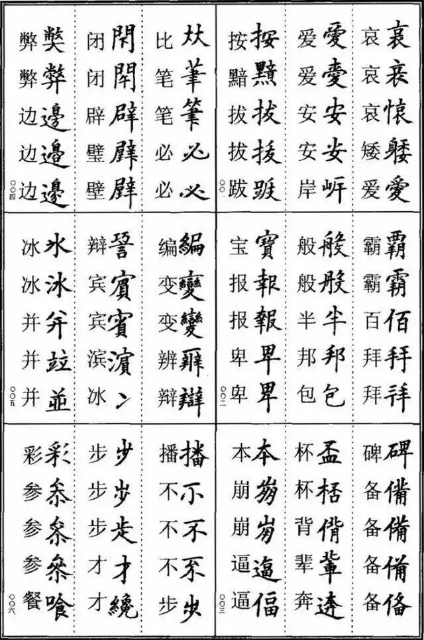 哀愛
哀哀哀矮爱
愛安安岍
爱爱安安岸
按拔拔跋
按黯拔拔跋
〇〇一
霸霸佰拜拜
霸霸百拜拜
般般半邦包
般般半邦包
寶報報卑卑
宝报报卑卑
〇〇二
碑備備備俻
碑备备备备
盃桮偝輩逩
杯杯背辈奔
本崩崩逼偪
本崩崩逼逼
〇〇三
夶筆必必
比笔笔必必
閇閉辟
闭闭辟璧壁
獘弊邊邊邊
弊弊边边边
〇〇四
編變變辨辯
编变变辨辩
賓賓濱冫
辩宾宾滨冰
氷冰并竝並
冰冰并并并
〇〇五
播不不步
播不不不步
步步才纔
步步步才才
彩叅參喰
彩参参参餐
〇〇六